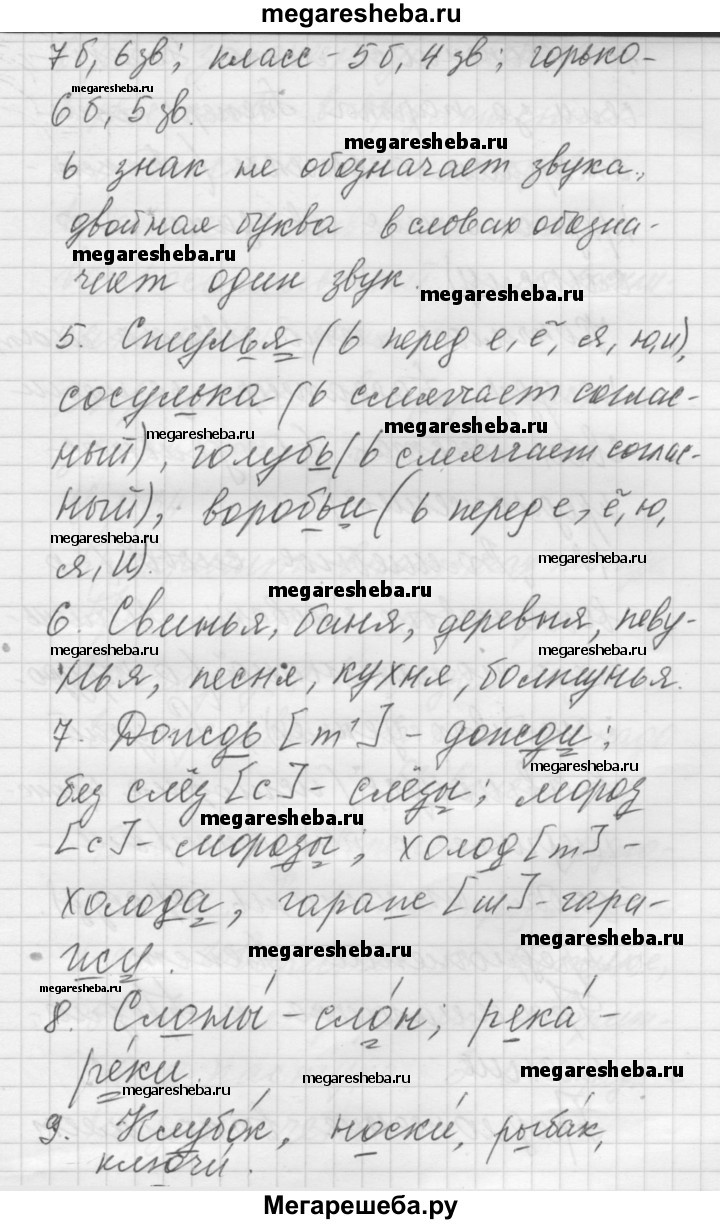 megaresheba.ru
7б, 6 зв; класс - 5б, 4 зв; горько-
megaresheba.ru
6б, 5 зв.
megaresheba.ru
ь знак не обозначает звука,
двойная буква в словах обозна-
megaresheba.ru
чает один звук.
megaresheba.ru
5. Стулья (ь перед е, ё, я, ю, и),
сосулька (ь смягчает соглас-
megaresheba.ru megaresheba.ru
ный), голубь (ь смягчает соглас-
ный), воробьи (ь перед е, ё, ю,
megaresheba.ru megaresheba.ru
я, и).
megaresheba.ru
6. Свинья, баня, деревня, певу-
megaresheba.ru megaresheba.ru
нья, песня, кухня, болтунья.
7. Дождь [т'] - дожди;
megaresheba.ru
без слёз [с] - слёзы; мороз
megaresheba.ru
[с] - морозы; холод [т] -
холода, гараж [ш] - гара-
megaresheba.ru megaresheba.ru
жу.
megaresheba.ru
8. Слоны́ - сло́н; река́ -
ре́ки.
megaresheba.ru megaresheba.ru megaresheba.ru
9. Клубо́к, носки́, рыба́к,
ключи́.
Мегарешеба.ру